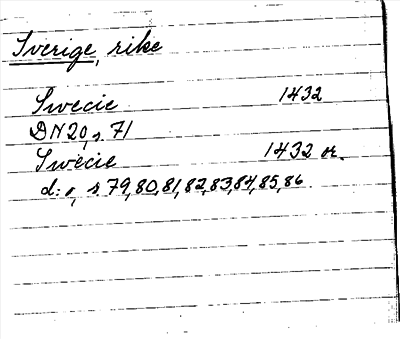 Sverige, rike
Swecie 1432
DN 20, s. 71
Swecie 1432 or.
d:o, s 79, 80, 81, 82, 83, 84, 85, 86